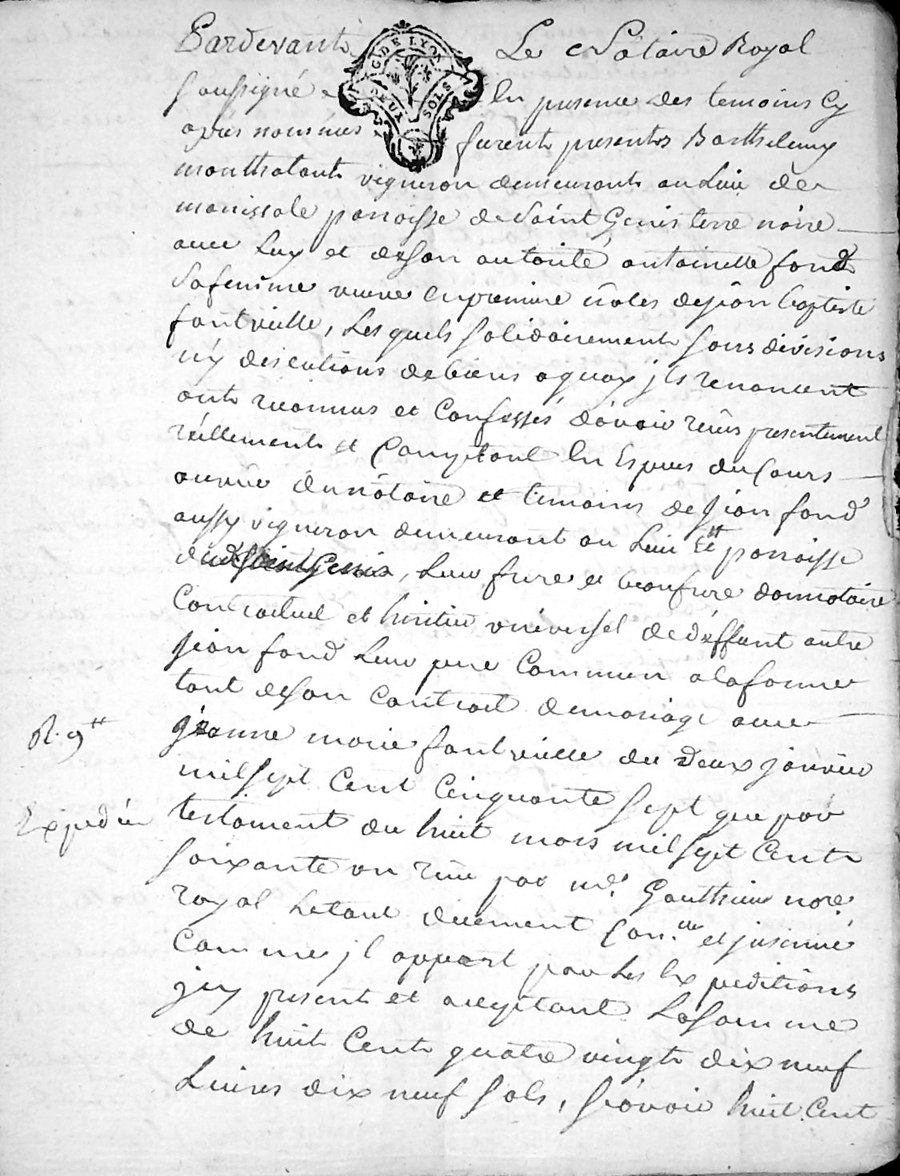 Pardevant Le Notaire Royal
G. DE LYON
DEUX SOLS
soussigné En presence des temoins Cy
apres nommes furent presents Barthelemy
monthatant vigneron demeurant au Lieu de
manissole paroisse de Saint Genis terre noire
avec Luy et de son autorité antoinette fond
Sa femme veuve en premiere nôces de jean baptiste
fontvielle, Lesquels solidairement sans divisions
n'y discutions de biens a quoy jls renoncent
ont reconnus et Confessés d'avoir reûs presentement
réellement et Comptant En Especes du Cours
a veüe du nôtaire et temoins de jean fond
aussy vigneron demeurant au Lieu Et paroisse
dud. Saint Genis, Leur frere et beaufrere donnotaire
Contractuel et heritier vniversel de deffunt autre
jean fond Leur pere Commun a la forme
tant de son Contract de mariage avec
jeanne marie fontvielle du deux janvier
R. 9tt
mil sept Cent Cinquante sept que par
Expediée
testament du huit mars mil sept Cent
soixante un reçu par me. Gauthier nore.
royal Le tout düement Con.lle et jnsinué
Comme jl appert par Les Expeditions
jcy present et acceptant La somme
de huit Cent quatre vingt dix neuf
Livres dix neuf sols, sçavoir huit Cent